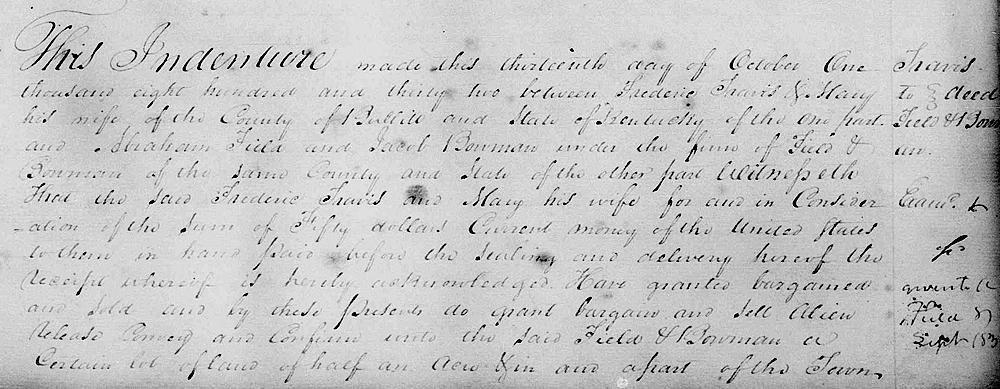 This Indenture made this thirteenth day of October One
thousand eight hundred and thirty two between Frederic Travis & Mary
his wife of the County of Bullitt and State of Kentucky of the one part
and Abraham Field and Jacob Bowman under the firm of Field &
Bowman of the same County and State of the other part Witnesseth
That the said Frederic Travis and Mary his wife for and in Consider
-ation of the sum of Fifty dollars Current money of the United States
to them in hand paid before the sealing and delivery hereof the
receipt whereof is hereby acknowledged. Have granted bargained
and sold and by these presents do grant bargain and sell Alien
release Convey and Confirm unto the said Field & Bowman a
Certain lot of land of half an acre & in and apart of the Town
Travis
to } deed
Field & Bowm
an.
Exam.d &
Field &
Sept